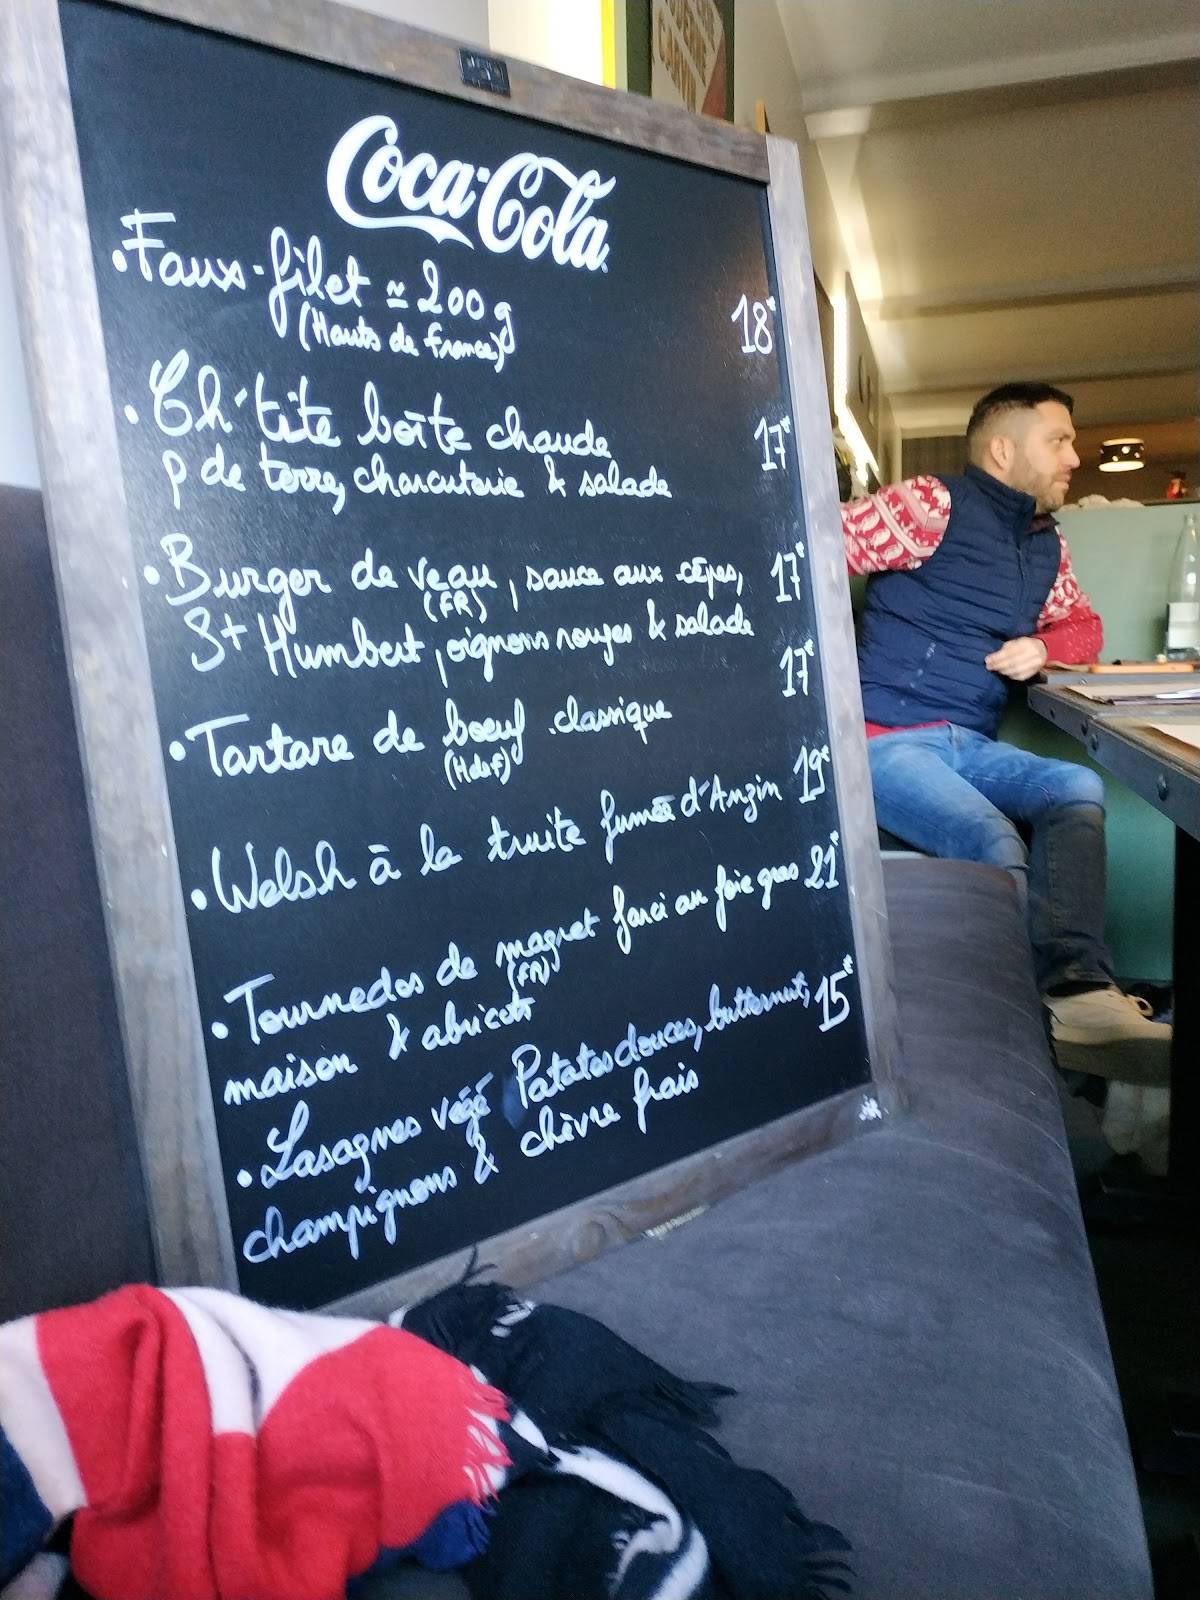 Coca-Cola
• Faux-filet ≃ 200 g 18€
(Hauts de France)
• Ch'tite boîte chaude 17€
p de terre, charcuterie & salade
• Burger de veau, sauce aux cêpes, 17€
(FR)
St Humbert, oignons rouges & salade
• Tartare de boeuf classique 17€
(HdeF)
• Welsh à la truite fumée d'Anzin 19€
• Tournedos de magret farci au foie gras 21€
(FR)
maison & abricots
• Lasagnes végé Patates douces, butternut, 15€
champignons & chèvre frais